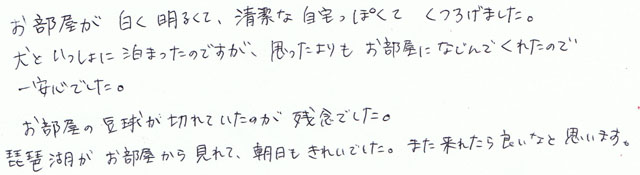 お部屋が 白く 明るくて、清潔な 自宅っぽくて くつろげました。
犬といっしょに 泊まったのですが、思ったよりも お部屋になじんでくれたので
一安心でした。
お部屋の 豆球が 切れていたのが 残念でした。
琵琶湖が お部屋から 見れて、朝日も きれいでした。また来れたら 良いなと 思います。